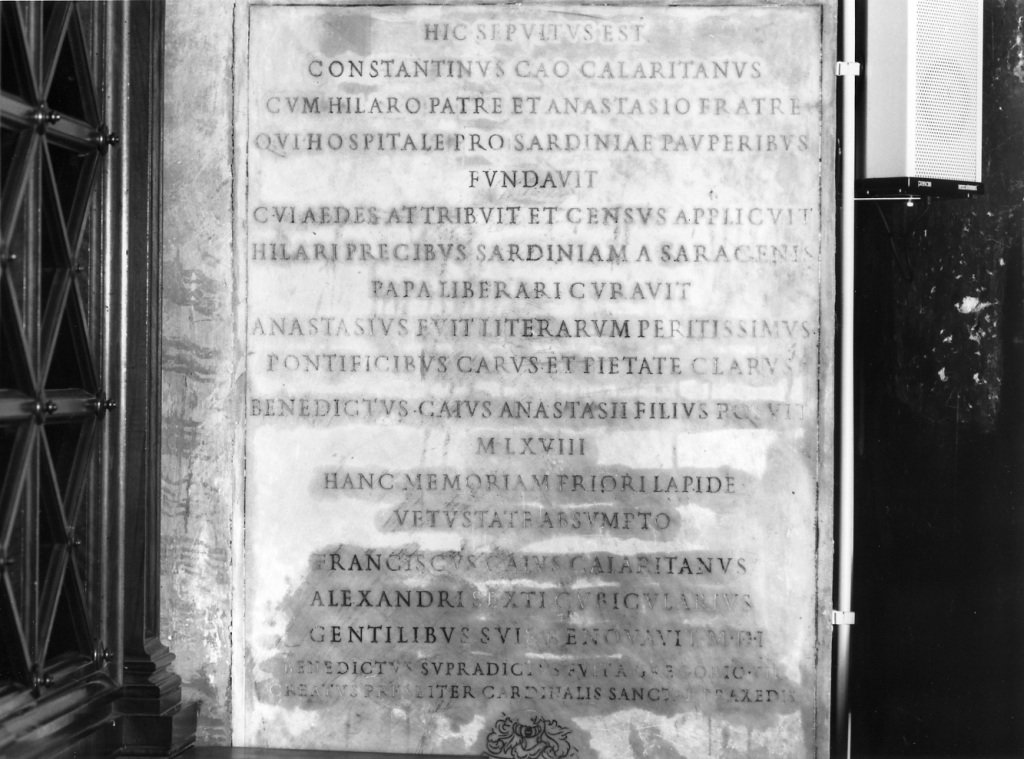 HIC SEPVLTVS EST
CONSTANTINVS CAO CALARITANVS
CVM HILARO PATRE ET ANASTASIO FRATRE
QVI HOSPITALE PRO SARDINIAE PAVPERIBVS
FVNDAVIT
CVI AEDES ATTRIBVIT ET CENSVS APPLICVIT
HILARI PRECIBVS SARDINIAM A SARACENIS
PAPA LIBERARI CVRAVIT
ANASTASIVS FVIT LITERARVM PERITISSIMVS
PONTIFICIBVS CARVS ET PIETATE CLARVS
BENEDICTVS CAIVS ANASTASII FILIVS POSVIT
M LXVIII
HANC MEMORIAM PRIORI LAPIDE
VETVSTATE ABSVMPTO
FRANCISCVS CAIVS CALARITANVS
ALEXANDRI SEXTI CVBICVLARIVS
GENTILIBVS SVIS RENOVAVIT
BENEDICTVS SVPRADICTVS
CREATVS PRESBITER CARDINALIS SANCTAE PRAXEDIS